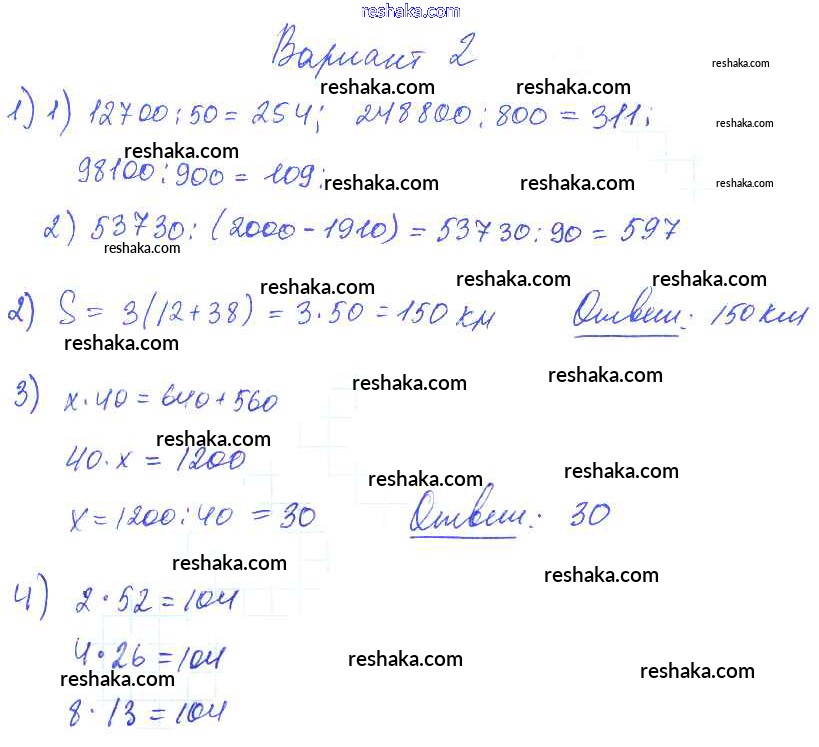 reshaka.com
Вариант 2
reshaka.com
reshaka.com reshaka.com
1) 1) 12700:50 = 254; 248800:800 = 311;
reshaka.com
reshaka.com
98100:900 = 109;
reshaka.com reshaka.com reshaka.com
2) 53730:(2000-1910) = 53730:90 = 597
reshaka.com
reshaka.com reshaka.com reshaka.com
2) S = 3(12+38) = 3·50 = 150 км Ответ: 150 км
reshaka.com
reshaka.com reshaka.com
3) x·40 = 640+560
reshaka.com
40·x = 1200
reshaka.com reshaka.com
x = 1200:40 = 30 Ответ: 30
reshaka.com reshaka.com
4) 2·52 = 104
4·26 = 104
reshaka.com reshaka.com reshaka.com
8·13 = 104